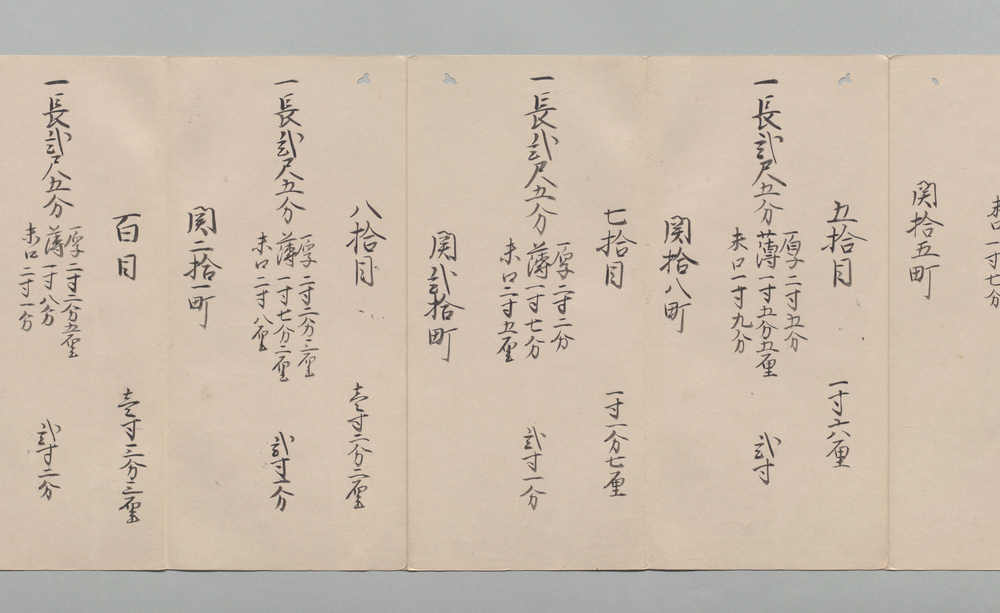 末口一寸七分
関拾五町
五拾目　一寸六厘
一長弐尺五分
厚二寸五分
薄一寸五分五厘
末口一寸九分
弐寸
関拾八町
七拾目　一寸一分七厘
一長弐尺五分
厚二寸二分
薄一寸七分
末口二寸五厘
弐寸一分
関弐拾町
八拾目　壱寸二分二厘
一長弐尺五分
厚二寸二分二厘
薄一寸七分二厘
末口二寸八厘
弐寸一分
関二拾一町
百目　壱寸三分三厘
一長弐尺五分
厚二寸二分五厘
薄一寸八分
末口二寸一分
弐寸二分